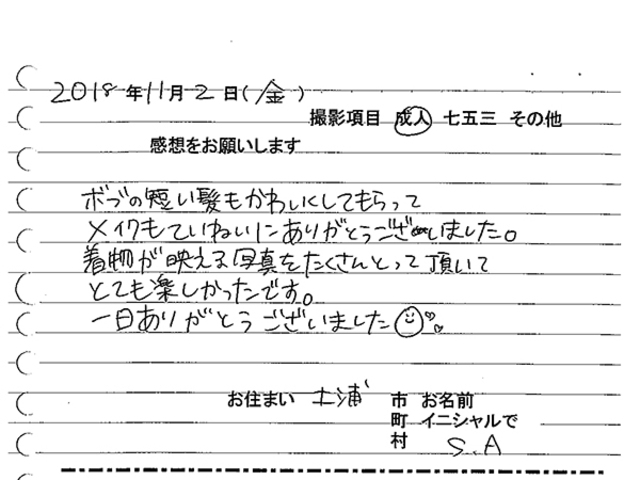 2018年11月2日(金)
撮影項目 成人 七五三 その他
感想をお願いします
ボブの短い髪もかわいくしてもらって
メイクもていねいにありがとうございました。
着物が映える写真をたくさんとって頂いて
とても楽しかったです。
一日ありがとうございました
お住まい 土浦 市 お名前
町 イニシャルで
村 S.A